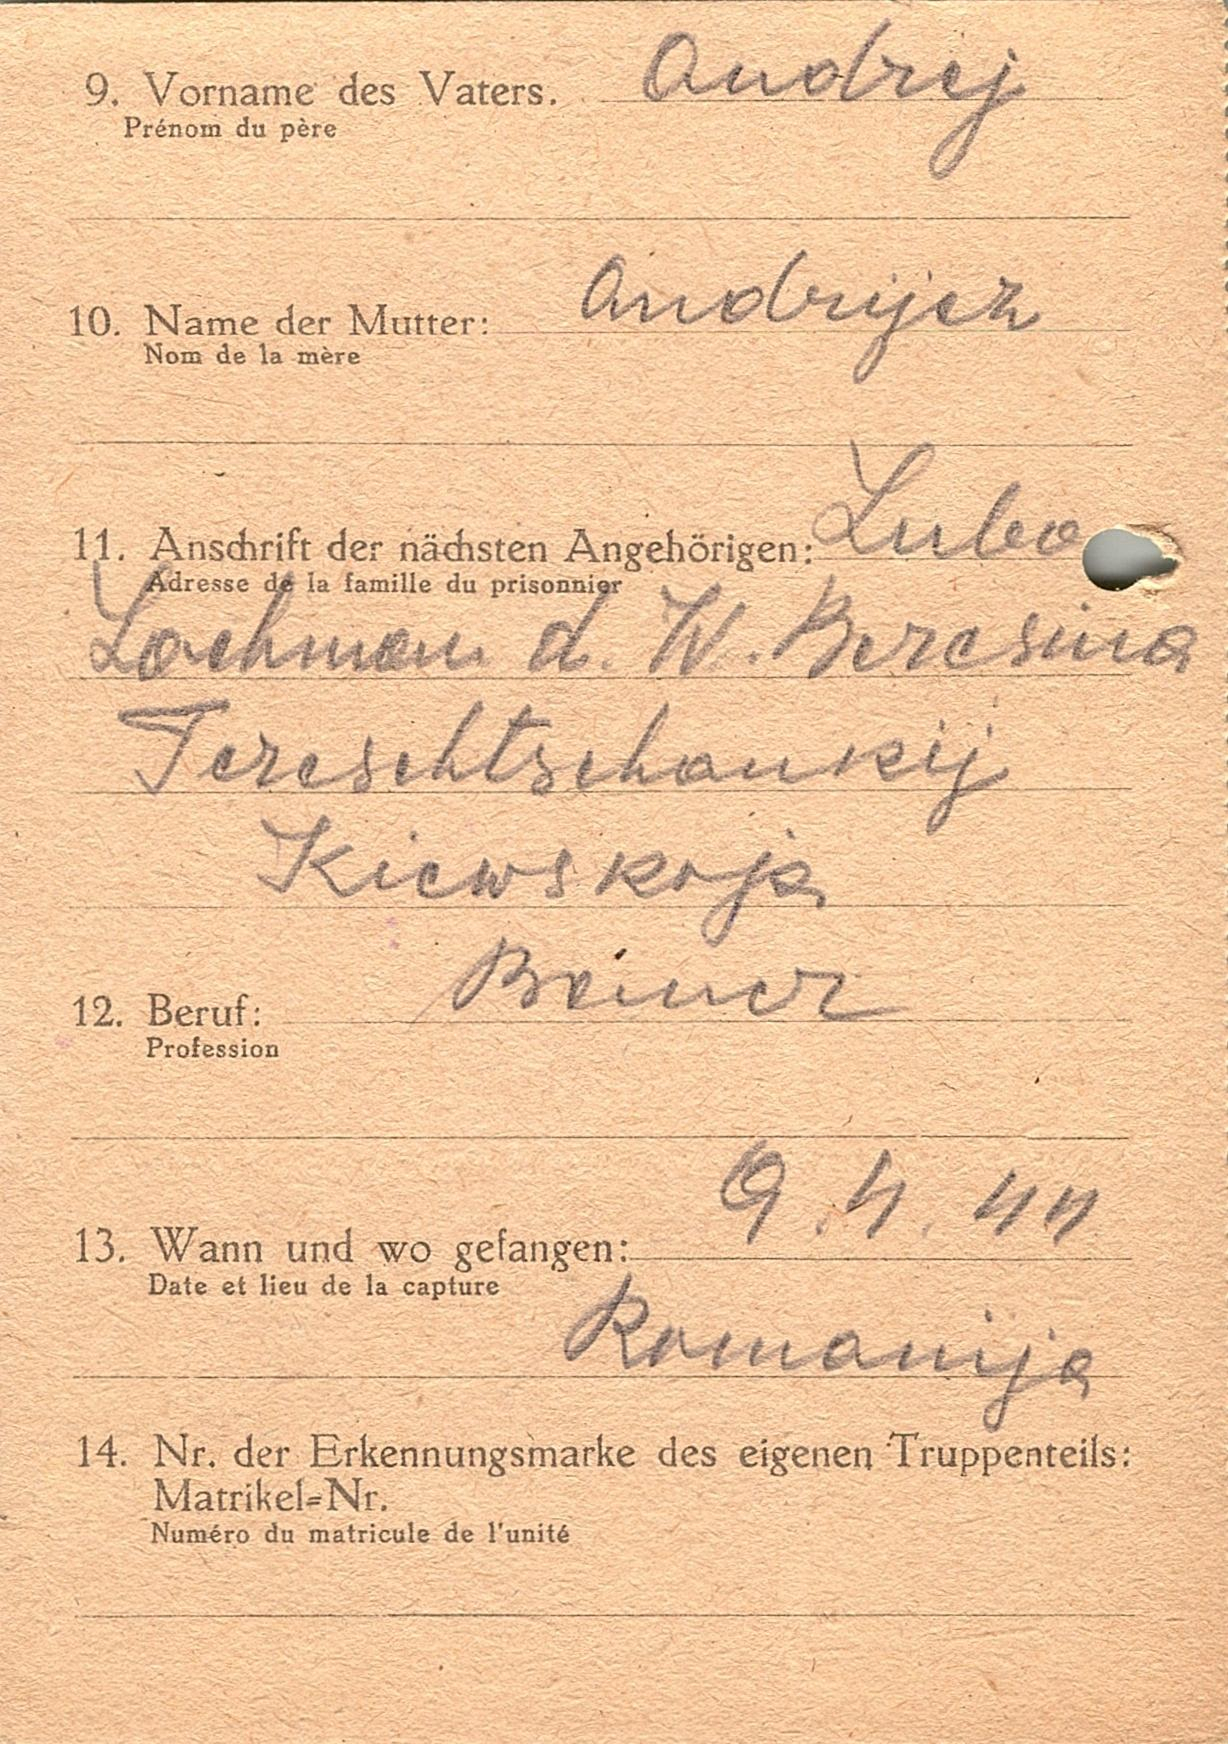 9. Vorname des Vaters. Andrej
Prénom du père
10. Name der Mutter: Andrijez
Nom de la mère
11. Anschrift der nächsten Angehörigen: Luba
Adresse de la famille du prisonnier
Lochman d. W. Beresina
Tereschtschankij
Kiewskoja
12. Beruf: Bauer
Profession
13. Wann und wo gefangen: 9.4.44
Date et lieu de la capture
Romanija
14. Nr. der Erkennungsmarke des eigenen Truppenteils:
Matrikel=Nr.
Numéro du matricule de l'unité